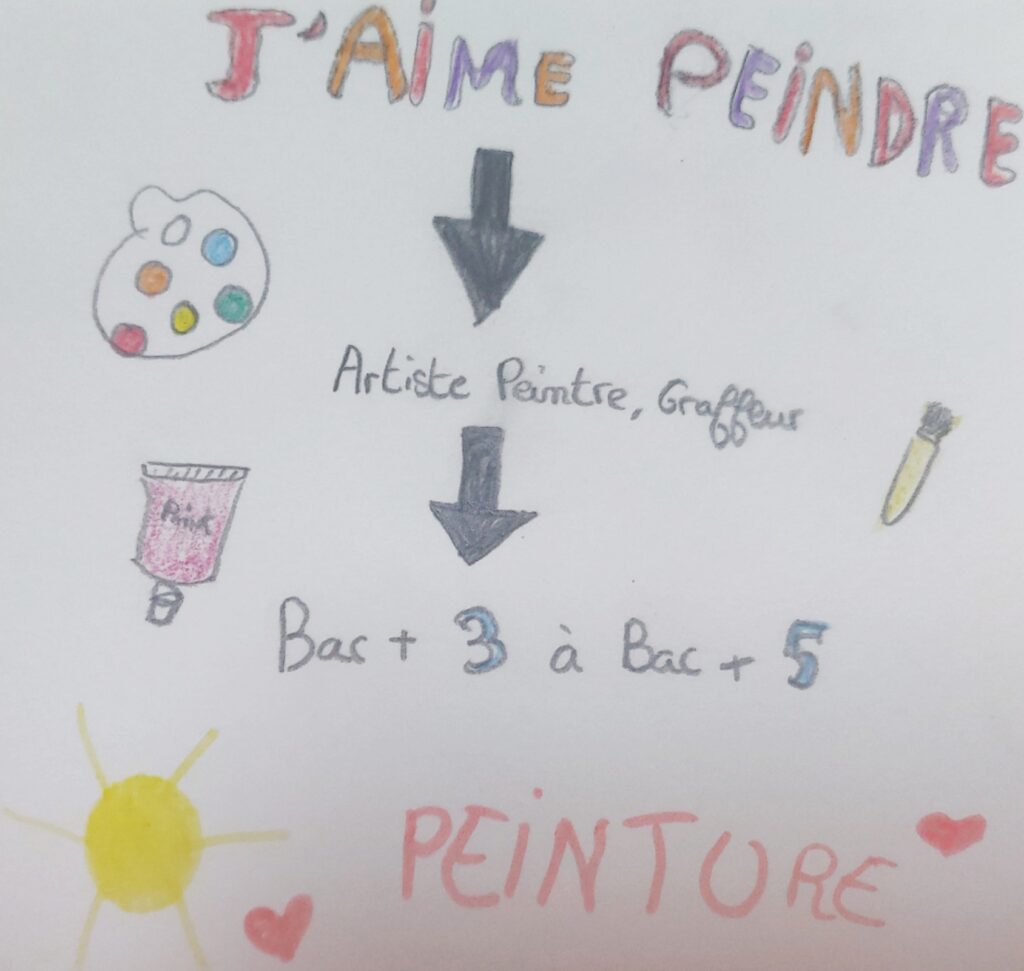 J'AiME PEiNDRE
Artiste Peintre, Graffeur
Pink
Bac + 3 à Bac + 5
PEiNTURE